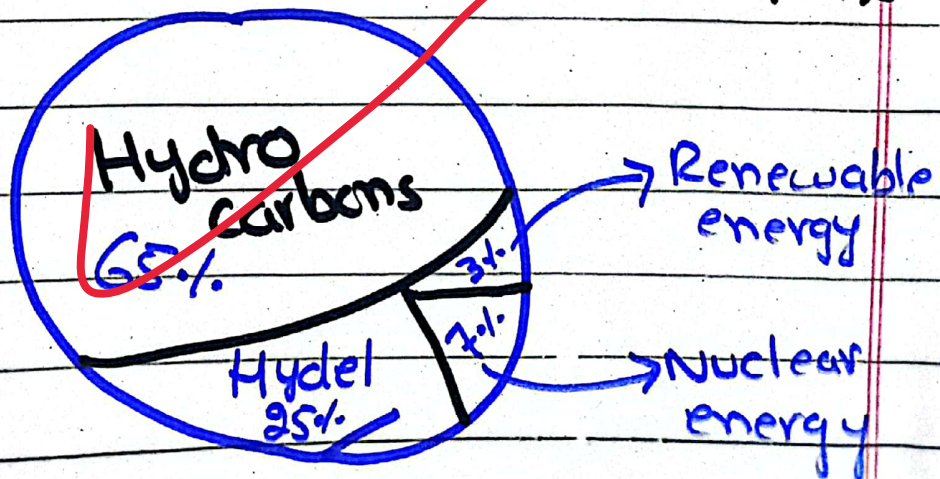 Hydro
carbons
65%
3%
Renewable
energy
7%
Nuclear
energy
Hydel
25%